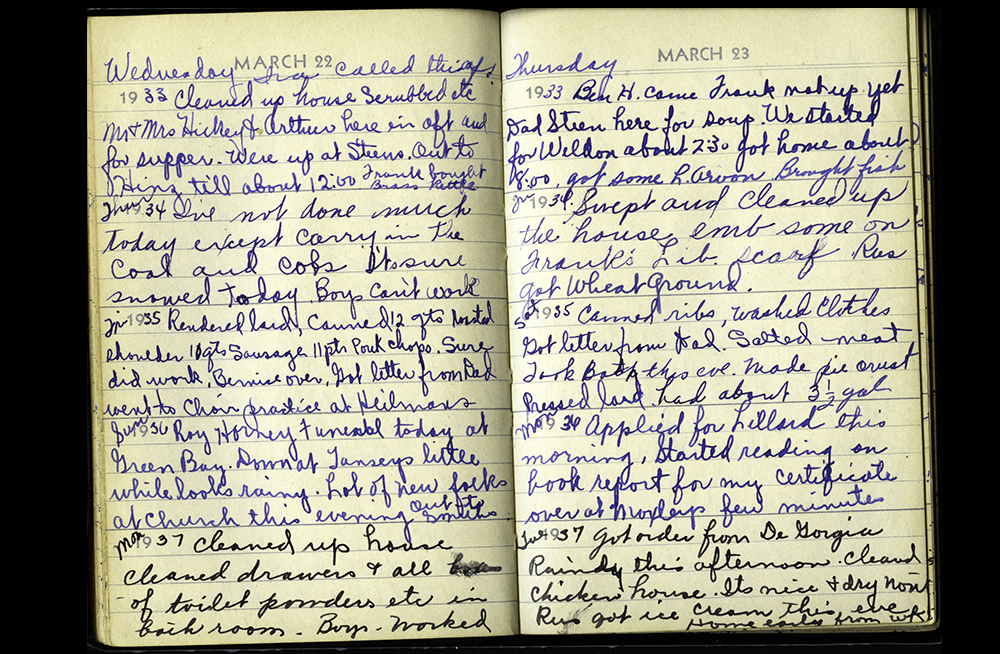 MARCH 22
Wednesday called this aft.
1933 Cleaned up house Scrubbed etc
Mr & Mrs Hickey & Arthur here in aft and
for supper. Were up at Steens. Out to
Hinz till about 12:00 Frank bought
Brass Kettle
Thurs 1934 I've not done much
today except carry in the
coal and cobs Its sure
snowed today. Boys can't work
Fri 1935 Rendered lard, Canned 12 qts
shoulder 10 qts Sausage 11 pts Pork chops. Sure
did work. Bernice over, Got letter from Dad
went to Choir practice at Heilmans
Sun 1936 Roy Horney Funeral today at
Green Bay. Down at Tanseys little
while looks rainy. Lot of new folks
at church this evening Out to
Smiths.
Mon 1937 Cleaned up house
cleaned drawers & all
of toilet powders etc in
back room - Boys - worked
MARCH 23
Thursday
1933 Ben H. came Frank not up yet
Dad Steen here for soup. We started
for Weldon about 2:30 got home about
8:00, got some L. Arvon. Brought fish
Fri 1934. Swept and cleaned up
the house, emb some on
Frank's Lib. scarf. Rus
got Wheat Ground.
S 1935 Canned ribs, washed clothes
Got letter from Dad. Salted meat
Took Bath this eve. Made pie crust
Pressed lard. had about 3½ gal
Mon 1936 Applied for Lillard this
morning, Started reading on
book report for my certificate
over at Moxleys few minutes
Tue 1937 Got order from De Gorgia
Raindy this afternoon. Cleaned
chicken house. Its nice & dry now
Rus got ice cream this eve
Home early from wk